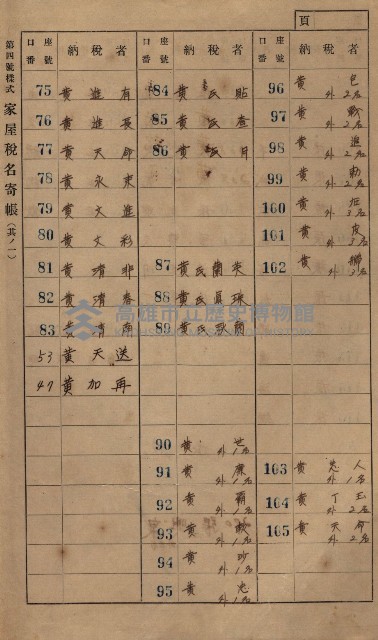 頁
第四號樣式 家屋稅名寄帳(其ノ一)
口座番號 納稅者
75 黃進有
76 黃進長
77 黃天命
78 黃永東
79 黃文進
80 黃文彩
81 黃清非
82 黃清春
83 黃清南
53 黃天送
47 黃加再
口座番號 納稅者
84 黃氏貼
85 黃氏查
86 黃氏月
87 黃氏蘭英
88 黃氏真珠
89 黃氏
90 黃世 外1名
91 黃 外1名
92 黃霸 外1名
93 黃 外1名
94 黃 外1名
95 黃忠 外1名
口座番號 納稅者
96 黃包 外2名
97 黃 外2名
98 黃進 外2名
99 黃 外2名
100 黃 外3名
101 黃皮 外3名
102 黃獅 外1名
103 黃 人 外1名
104 黃丁王 外2名
105 黃天 外2名
高雄市立歷史博物館